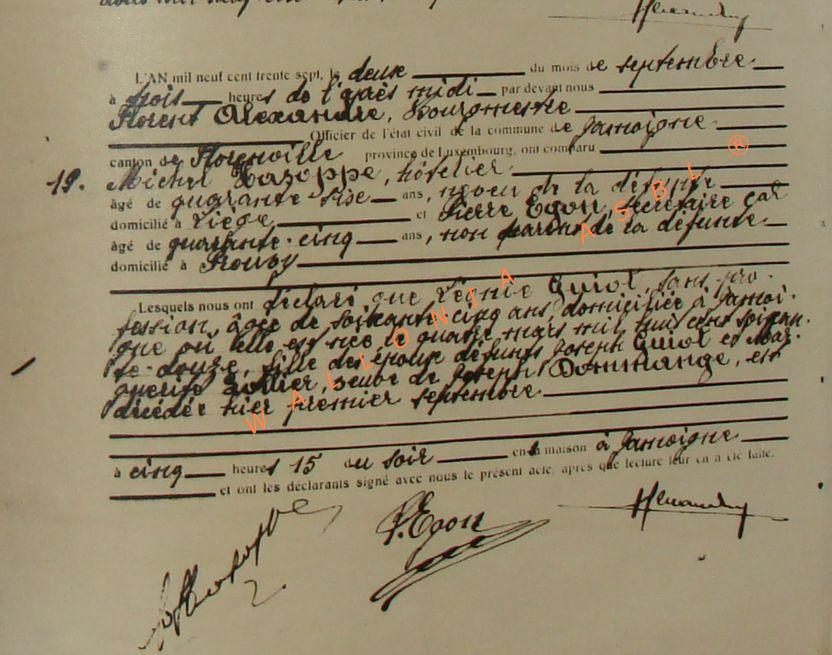 L'AN mil neuf cent trente sept, le deux du mois de septembre
à trois heures de l'après midi par devant nous
Florent Alexandre, Bourgmestre
Officier de l'état civil de la commune de Jamoigne
canton de Florenville province de Luxembourg, ont comparu
19. Michel hôtelier
âgé de quarante sise ans, neveu de la défunte
domicilié à Liège et Pierre Egon, secrétaire cal
âgé de quarante-cinq ans, non parent de la défunte
domicilié à Prouvy
Lesquels nous ont déclaré que Léonie Guiot, sans pro-
fession, âgée de soixante cinq ans domiciliée à Jamoi-
gne où elle est née le quatre mars mil huit cent soixan-
te-douze, fille des époux défunts Joseph Guiot et Mar-
guerite veuve de Joseph Dommange, est
décédée hier premier septembre
à cinq heures 15 du soir en la maison à Jamoigne
et ont les déclarants signé avec nous le présent acte, après que lecture leur en a été faite.
P. Egon
WALLONIA ASBL ®